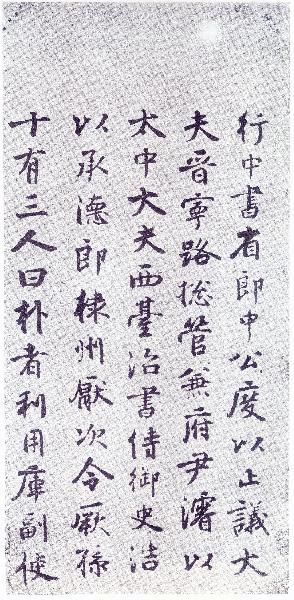 行中書省郎中公度以正議大
夫晋寧路捴管兼府尹濬以
太中大夫西臺治書侍御史浩
以承德郎棣州厭次令厥孫
十有三人曰朴者利用庫副使